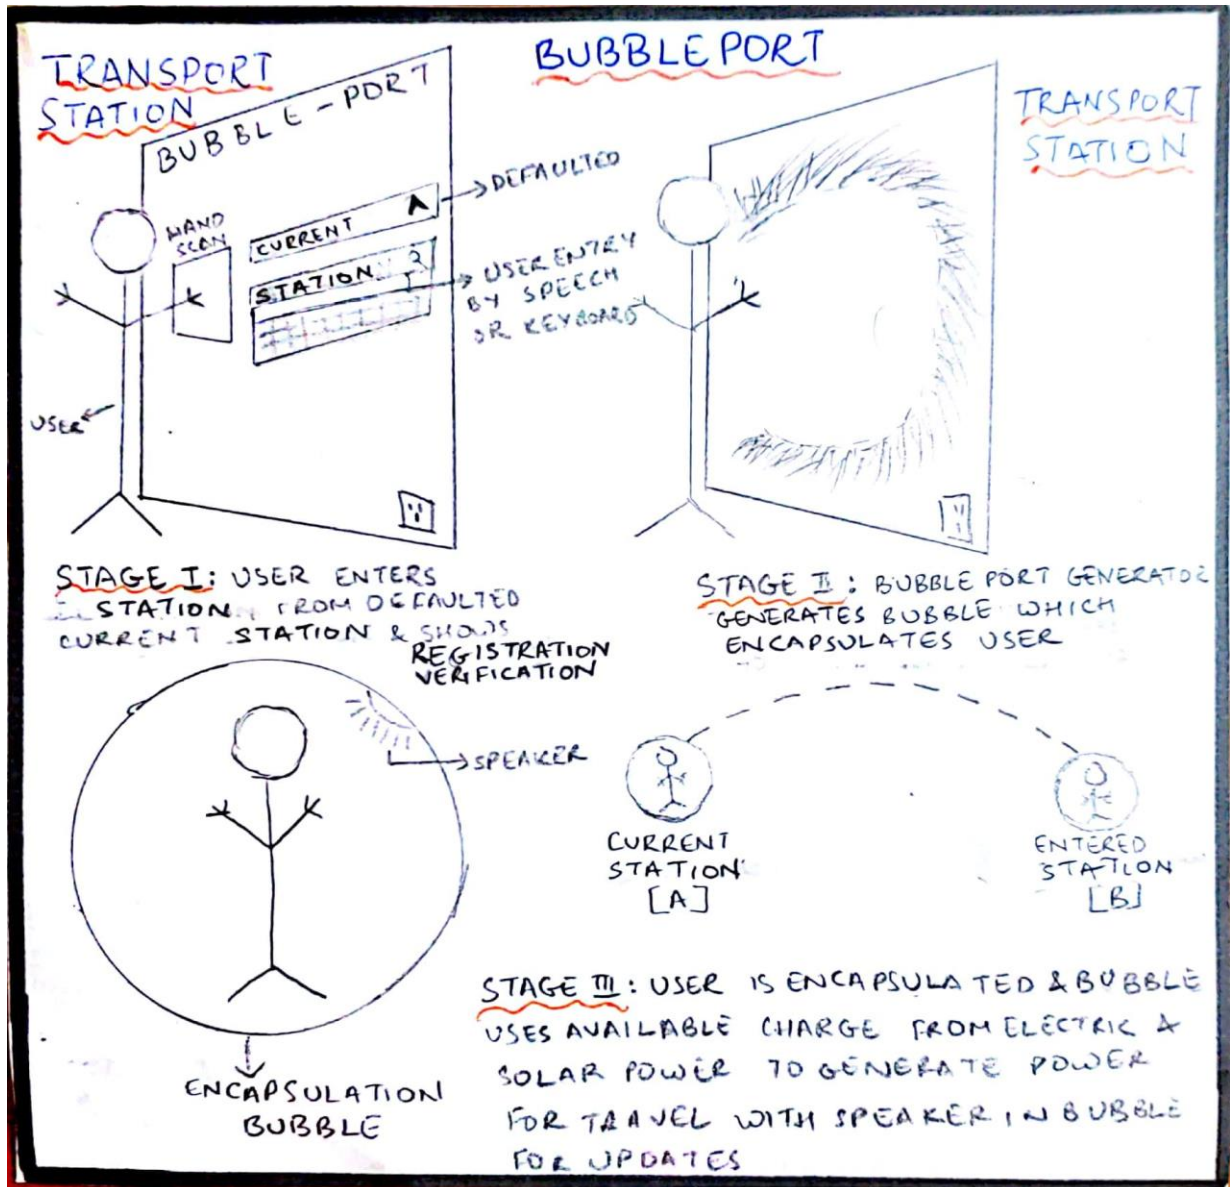 BUBBLEPORT
TRANSPORT
STATION
BUBBLE-PORT
HAND
SCAN
CURRENT A
STATION
DEFAULTED
USER ENTRY
BY SPEECH
OR KEYBOARD
USER
TRANSPORT
STATION
STAGE I: USER ENTERS
STATION FROM DEFAULTED
CURRENT STATION & SHOWS
REGISTRATION
VERIFICATION
STAGE II: BUBBLE PORT GENERATOR
GENERATES BUBBLE WHICH
ENCAPSULATES USER
SPEAKER
ENCAPSULATION
BUBBLE
CURRENT
STATION
[A]
ENTERED
STATION
[B]
STAGE III: USER IS ENCAPSULATED & BUBBLE
USES AVAILABLE CHARGE FROM ELECTRIC &
SOLAR POWER TO GENERATE POWER
FOR TRAVEL WITH SPEAKER IN BUBBLE
FOR UPDATES